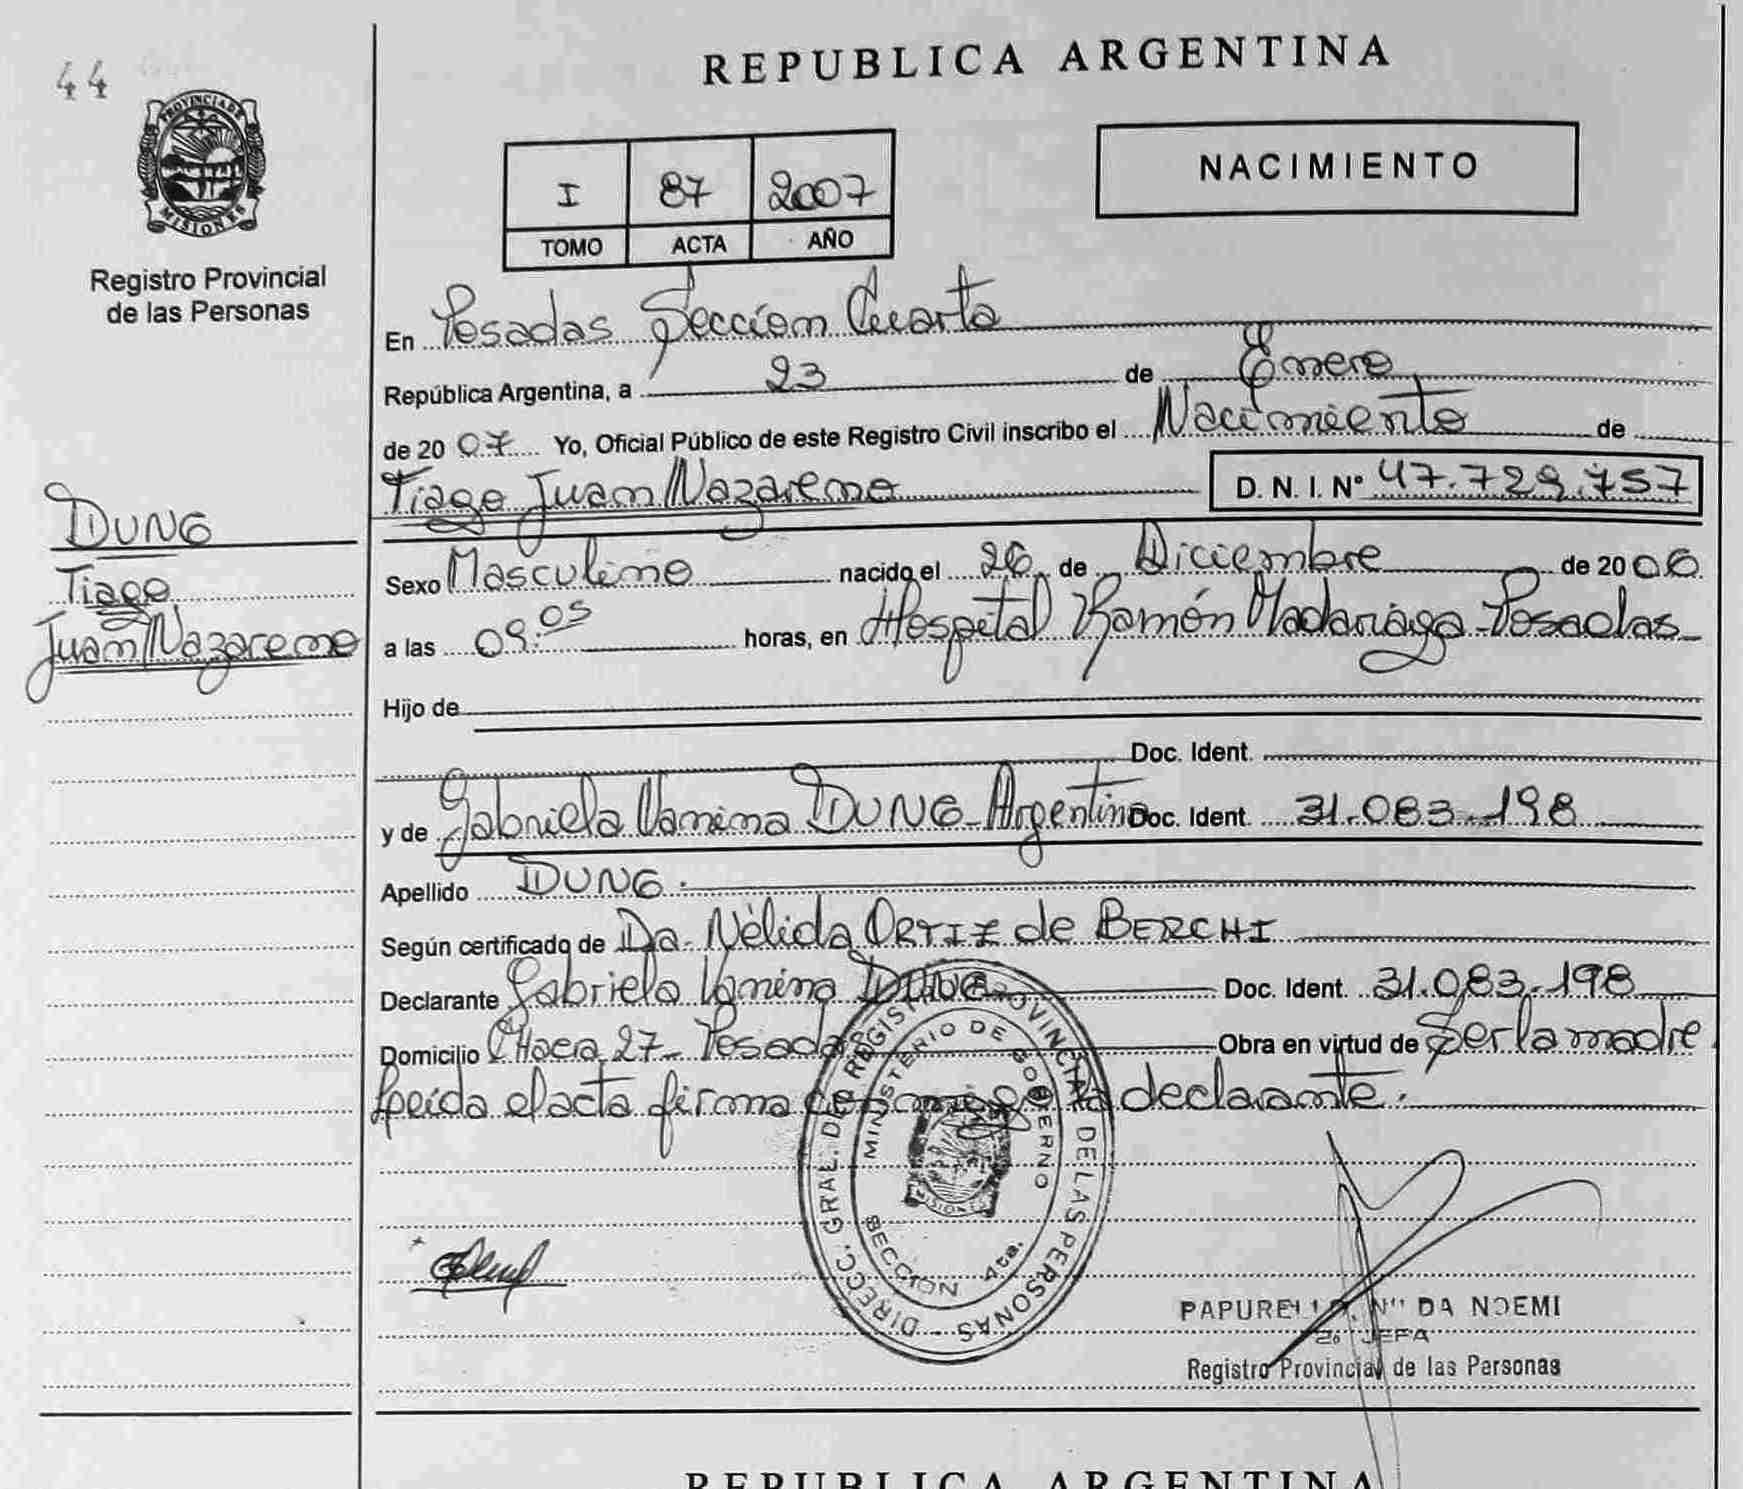 44
REPUBLICA ARGENTINA
PROVINCIA DE
MISIONES
Registro Provincial
de las Personas
I 87 2007
TOMO ACTA AÑO
NACIMIENTO
En Posadas Sección Cuarta
República Argentina, a 23 de Enero
de 2007 Yo, Oficial Público de este Registro Civil inscribo el Nacimiento de
Tiago Juan Nazareno D. N. I. N° 47.729.757
DUNG
Tiago
Juan Nazareno
Sexo Masculino nacido el 26 de Diciembre de 2006
a las 09:05 horas, en Hospital Ramón Madariaga - Posadas
Hijo de
Doc. Ident.
y de Gabriela Vanina DUNG - Argentina Doc. Ident. 31.083.198
Apellido DUNG.
Según certificado de Da. Nélida ORTIZ de BERCHI
Declarante Gabriela Vanina DUNG Doc. Ident. 31.083.198
Domicilio CHacra 27 - Posadas Obra en virtud de Ser la madre
Leida el acta firma conmigo la declarante.
DIRECC. GRAL. DE REGISTRO PROVINCIAL DE LAS PERSONAS
MINISTERIO DE GOBIERNO
MISIONES
SECCION 4ta.
DA NOEMI
2° JEFA
Registro Provincial de las Personas
REPUBLICA ARGENTINA